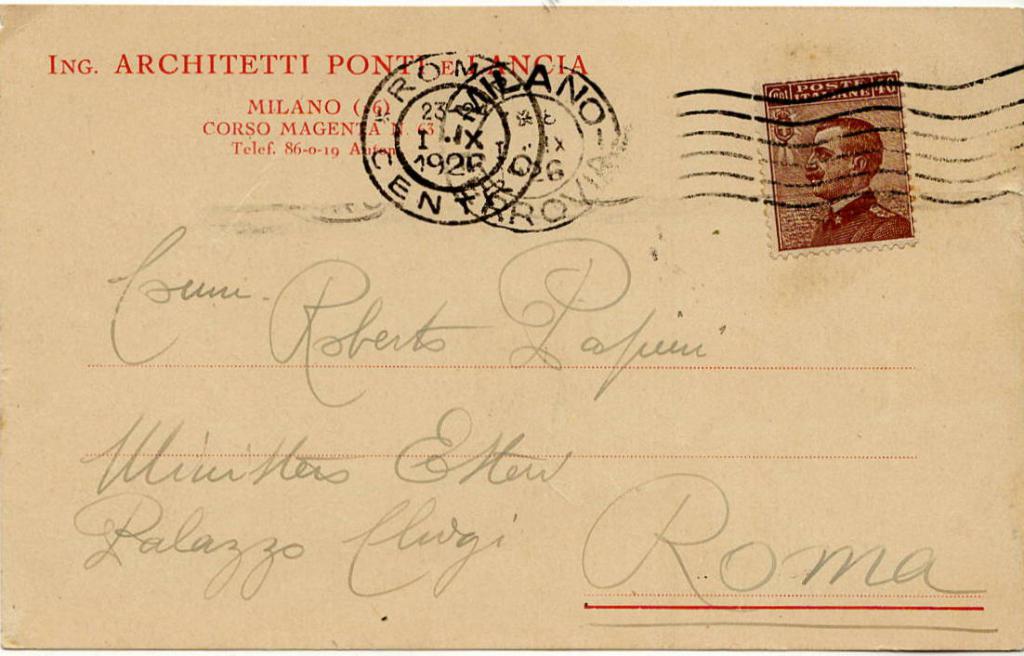 ING. ARCHITETTI PONTI E LANCIA
MILANO (16)
CORSO MAGENTA N. 63
Telef. 86-0-19 Autom
ROMA CENTRO
23-24
1 IX
1926
MILANO FERROVIA
IX
26
POSTE ITALIANE 40
Comm. Roberto Papini
Ministero Esteri
Palazzo Chigi
Roma